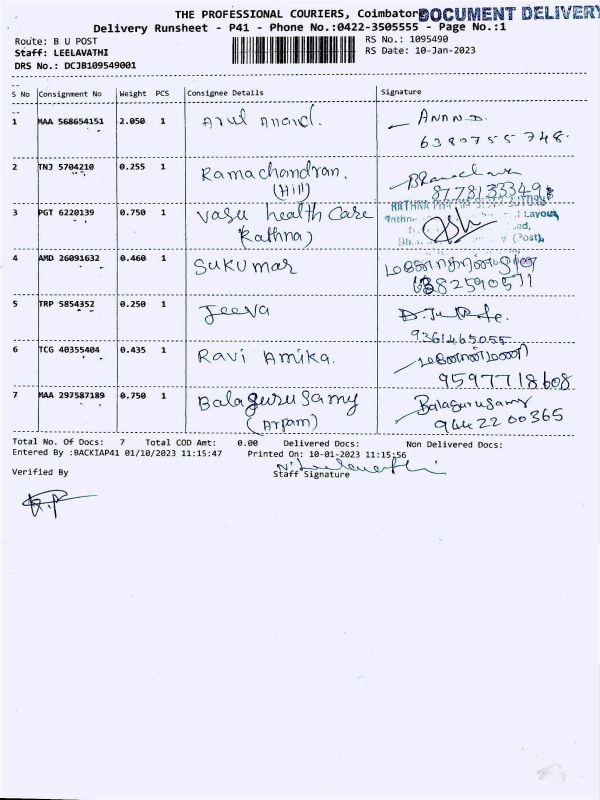 THE PROFESSIONAL COURIERS, Coimbator DOCUMENT DELIVERY
Delivery Runsheet - P41 - Phone No.:0422-3505555 - Page No.:1
Route: B U POST
RS No.: 1095490
Staff: LEELAVATHI
RS Date: 10-Jan-2023
DRS No.: DCJB109549001
S No Consignment No Weight PCS Consignee Details Signature
1 MAA 568654151 2.050 1 Arul Anand. ANAND.
6380755748.
2 TNJ 5704210 0.255 1 Ramachandran.
(Hill) 8778133349
3 PGT 6220139 0.750 1 Vasu health Care RATHNA
(Rathna) Layout,
(Post),
4 AMD 26091632 0.460 1 Sukumar
6382590571
5 TRP 5854352 0.250 1 Jeeva
9361465055
6 TCG 40355404 0.435 1 Ravi Amika.
9597718608
7 MAA 297587189 0.750 1 Balagurusamy Balagurusamy
(Arpam) 9442200365
Total No. Of Docs: 7 Total COD Amt: 0.00 Delivered Docs: Non Delivered Docs:
Entered By :BACKIAP41 01/10/2023 11:15:47 Printed On: 10-01-2023 11:15:56
Verified By Staff Signature